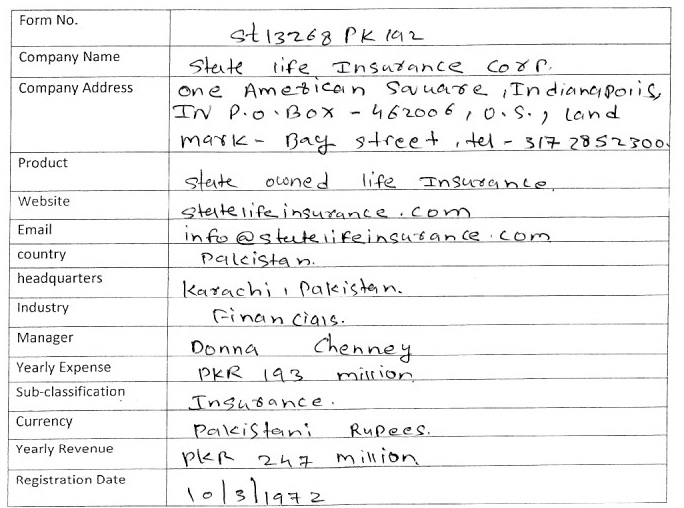 Form No. St13268 PK 192
Company Name State life Insurance Corp.
Company Address One American Square, Indianapolis,
IN P.O.Box - 462006, U.S., land
mark - Bay street, tel - 317 2852300.
Product State owned life Insurance.
Website statelifeinsurance.com
Email info@statelifeinsurance.com
country Pakistan.
headquarters Karachi, Pakistan.
Industry Financials.
Manager Donna Chenney
Yearly Expense PKR 193 million
Sub-classification Insurance.
Currency Pakistani Rupees.
Yearly Revenue PKR 247 million
Registration Date 10/3/1972